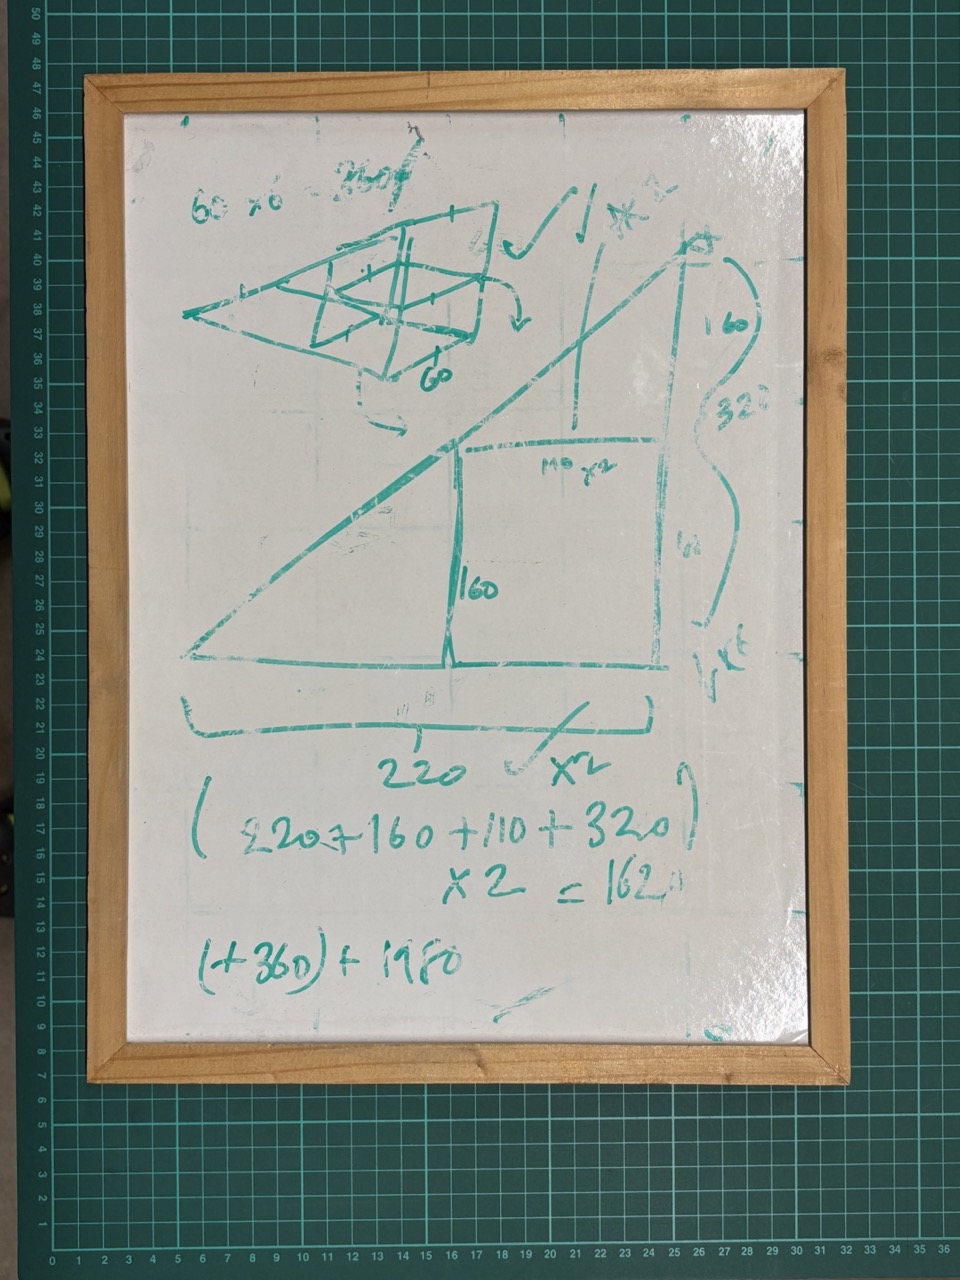 60 x6 = 360
x 2
60
160
320
110 x2
160
220 x2
(220+160+110+320)
x2 = 1620
(+360) + 1980
50
49
48
47
46
45
44
43
42
41
40
39
38
37
36
35
34
33
32
31
30
29
28
27
26
25
24
23
22
21
20
19
18
17
16
15
14
13
12
11
10
9
8
7
6
5
4
3
2
1
0 1 2 3 4 5 6 7 8 9 10 11 12 13 14 15 16 17 18 19 20 21 22 23 24 25 26 27 28 29 30 31 32 33 34 35 36